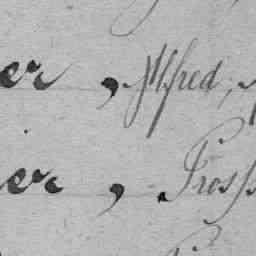 er, Alfred,
ier, Pross